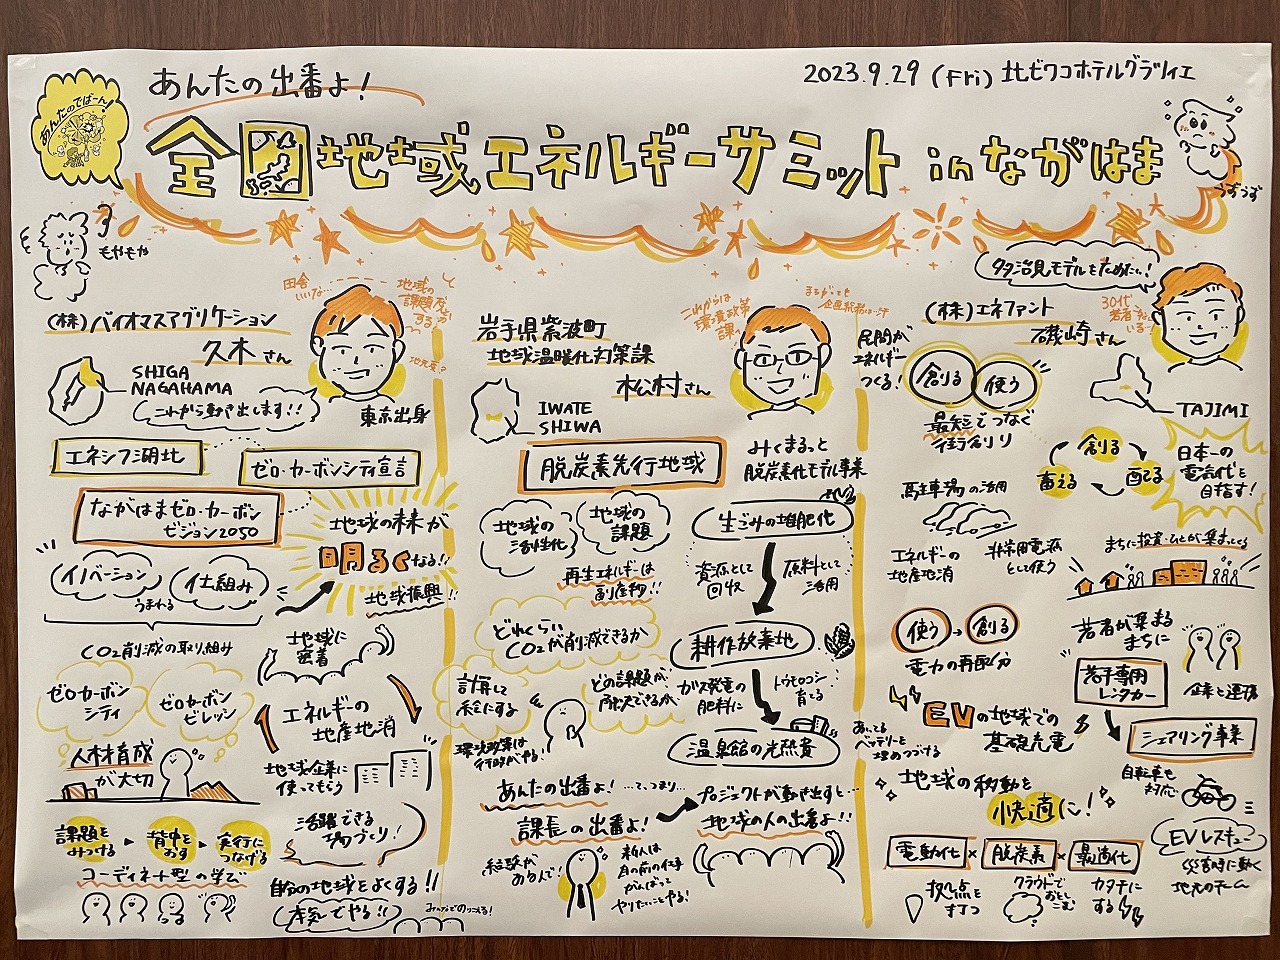 あんたの出番よ!
2023.9.29 (Fri) 北ビワコホテルグラツィエ
あんたのでばーん!
全国地域エネルギーサミット in ながはま
うずうず
もやもや
田舎いいな…
地域の
課題なんとか
する
(株)バイオマスアプリケーション
久木さん
SHIGA
NAGAHAMA
これから動き出します!!
東京出身
エネシフ湖北
ゼロ・カーボンシティ宣言
ながはまゼロ・カーボン
ビジョン2050
地域の未来が
明るくなる!!
地域振興!!
イノベーション
仕組み
うまれる
CO2削減の取り組み
ゼロカーボン
シティ
ゼロカーボン
ビレッジ
人材育成
が大切
地域に
密着
エネルギーの
地産地消
地域企業に
使ってもらう
課題を
みつける
背中を
おす
実行に
つなげる
コーディネート型の学び
活躍できる
場づくり!
自分の地域をよくする!!
本気でやる!!
岩手県紫波町
地域温暖化対策課
松村さん
これからは
環境政策
課!
IWATE
SHIWA
脱炭素先行地域
地域の
活性化
地域の
課題
再生エネルギーは
副産物!!
どれくらい
CO2が削減できるか
計算して
絵にする
どの課題が
解決できるか
環境政策は
行政がやる!
あんたの出番よ!
…で、つまり…
課長の出番よ!
経験が
あるんで!
新人は
目の前の仕事
がんばって
やりたいことやる!
みくまるっと
脱炭素化モデル事業
生ごみの堆肥化
資源として
回収
原料として
活用
耕作放棄地
ガス発電の
肥料に
トウモロコシ
育てる
温泉館の光熱費
プロジェクトが動き出すと…
地域の人の出番よ!!
多治見モデルをためたい!
(株)エネファント
磯崎さん
30代
若者
いる…
TAJIMI
民間が
エネルギー
つくる!
創る
使う
最短でつなぐ
街創り
創る
蓄える
配る
日本一の
電気代を
目指す!
駐車場の活用
エネルギーの
地産地消
非常用電源
として使う
まちに投資・ひとが集まってくる
使う→創る
電力の再配分
若者が集まる
まちに
若手専用
レンタカー
企業と連携
EVの地域での
基礎充電
シェアリング事業
地域の移動を
快適に!
自転車も
対応
電動化×脱炭素×最適化
拠点を
打つ
クラウドで
カタチに
する
EVレスキュー
災害時に動く
地元のチーム